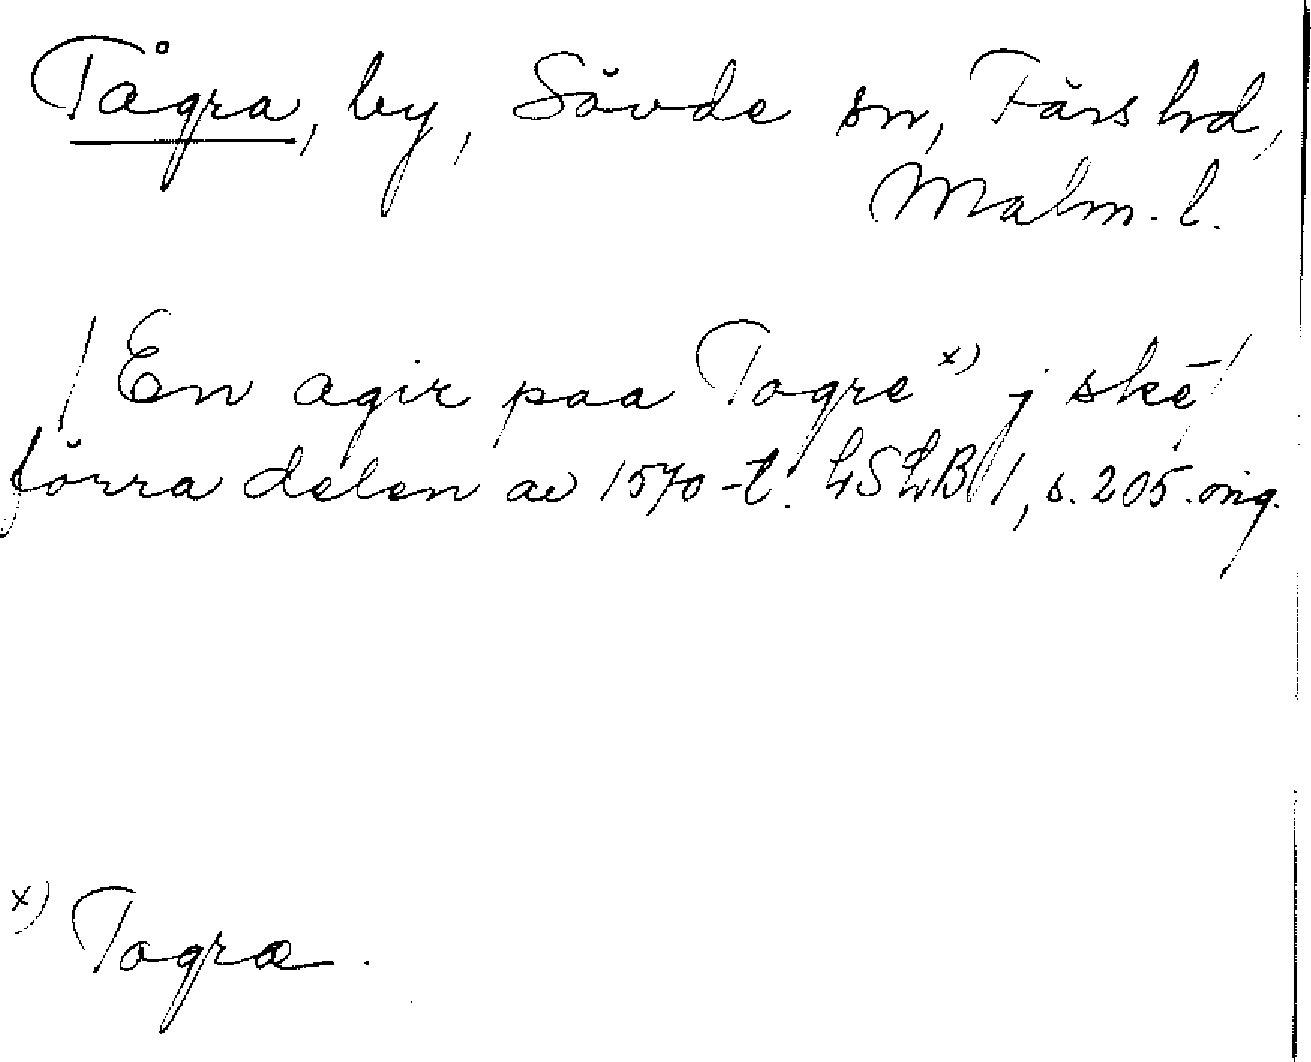 Tågra, by, Sövde sn, Färs hd,
Malm. l.
/ En agir paa Togre x) j ske /
förra delen av 1570-t. LSLB 1, s. 205. orig.
x) Togra.